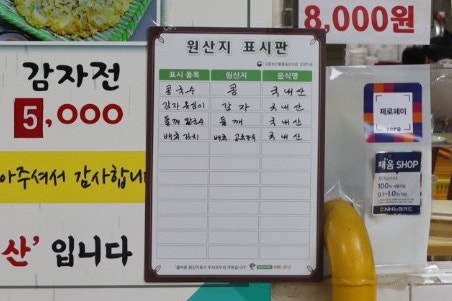 8,000원
감자전
5,000
아주셔서 감사합니
산' 입니다
원산지 표시판
표시 품목 원산지 음식명
콩국수 콩 국내산
감자옹심이 감자 국내산
들깨 칼국수 들깨 국내산
배추김치 배추, 고춧가루 국내산
제로페이
zero
채움 SHOP
NH농협카드